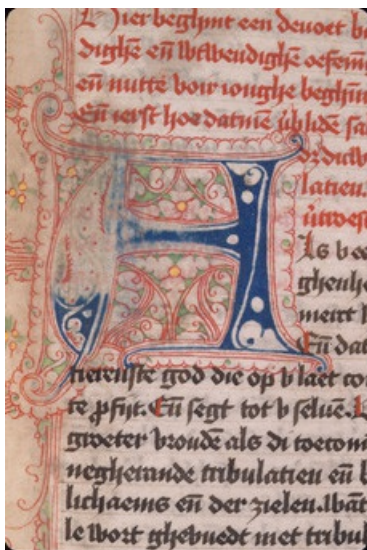 Hier beghint een deuoet b
dighe en̄ wtwendighe oefeni
en̄ nutte voir ionghe beghin
En̄ ierst hoe datme v̄blide sa
latien.
A
ls v
ghenhe
meret
En̄ dat
tierenste god die op v laet co
te ꝓfijt. En̄ segt tot v seluē.
groeter vroudē als di toecom
negherande tribulatien en̄
lichaems en̄ der zielen. wāt
le wort ghebuedt met tribul